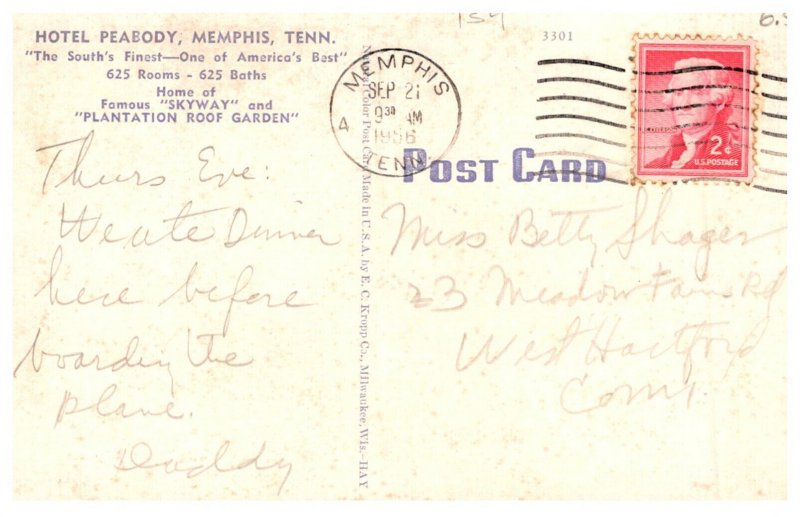 HOTEL PEABODY, MEMPHIS, TENN.
"The South's Finest—One of America's Best"
625 Rooms - 625 Baths
Home of
Famous "SKYWAY" and
"PLANTATION ROOF GARDEN"
Thurs Eve:
We ate Dinner
here before
boarding the
plane.
Daddy
Post Card Made in U.S.A. by E. C. Kropp Co., Milwaukee, Wis.—HAY
154
3301
MEMPHIS
SEP 21
9 30 AM
1956
4 TENN.
POST CARD
2¢
U.S. POSTAGE
Miss Betty Shager
23 Meadow Rd
West Hartford
Conn.